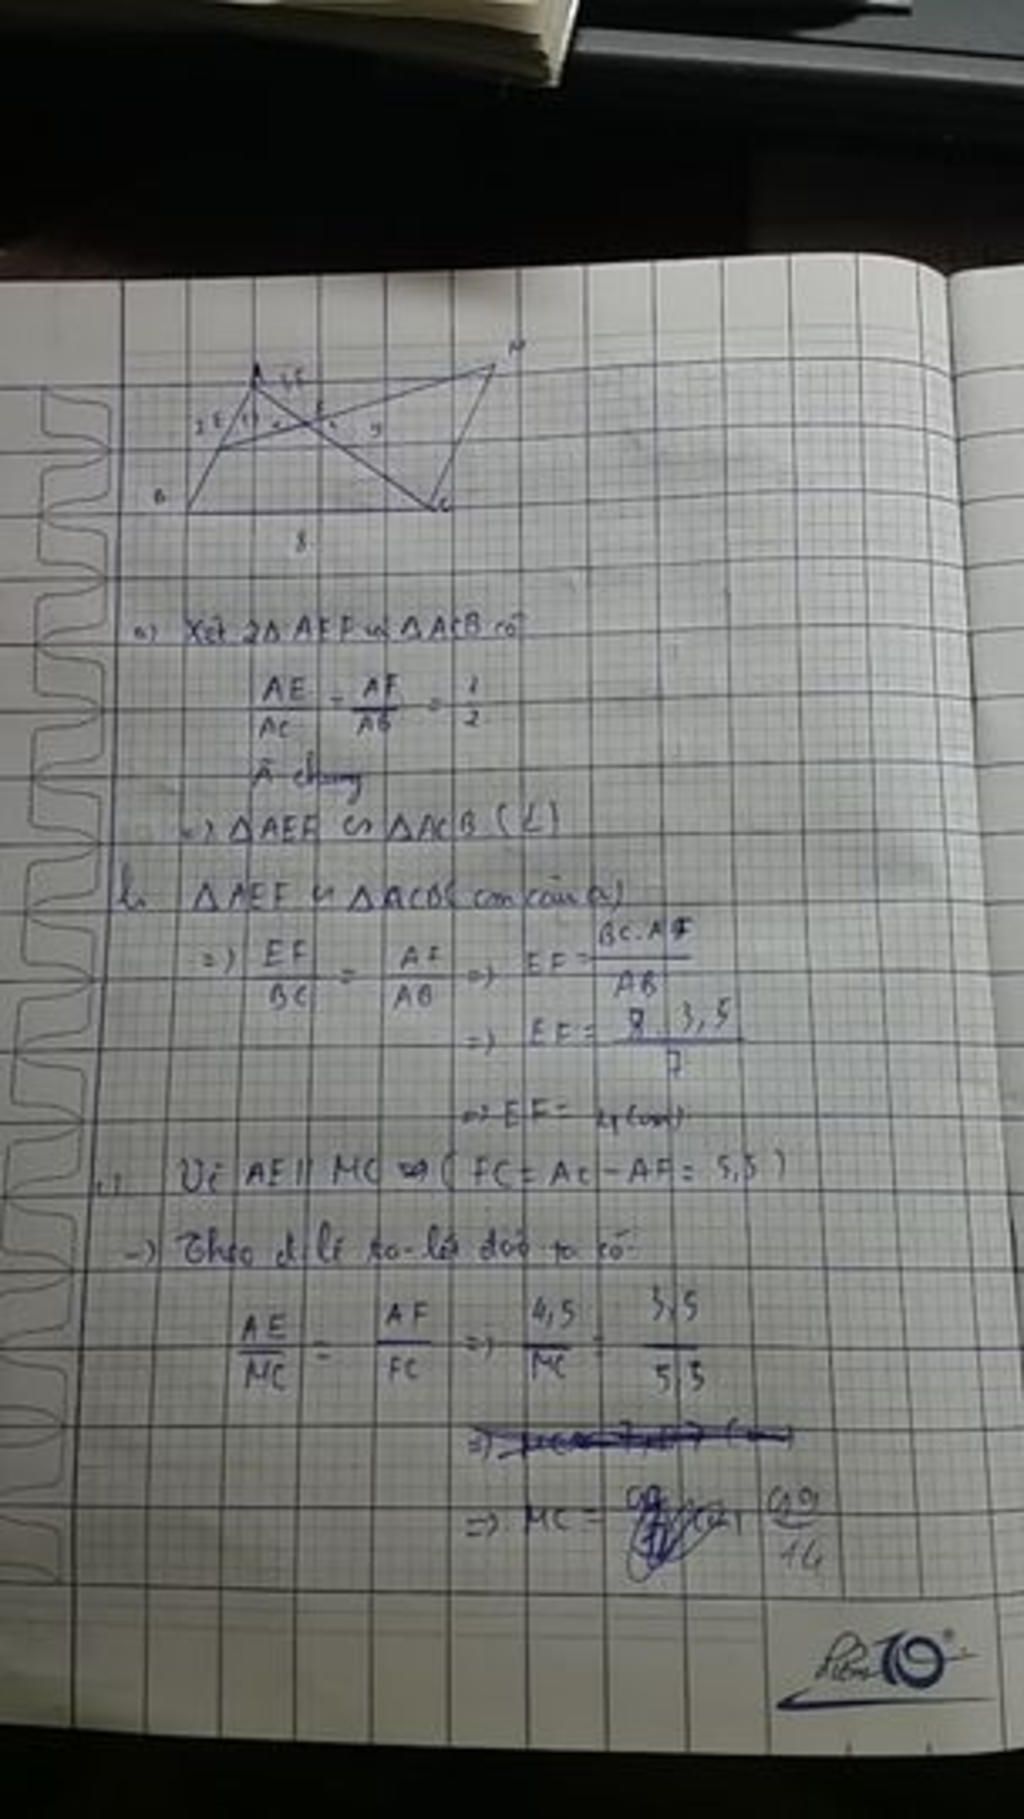 A
M
B
C
8
a) Xét 2Δ AEF và ΔACB có
AE/AC = AF/AB = 1/2
Â chung
=> ΔAEF ∽ ΔACB
b, ΔAEF ∽ ΔACB ( câu a)
=> EF/BC = AF/AB => EF = BC.AF/AB
=> EF = 8 3,5/7
=> EF = 4(cm)
Vì AE // MC => ( FC = AC - AF = 5,5 )
=> Theo đ lí ta-lét ta có
AE/MC = AF/FC => 4,5/MC = 3,5/5,5
=> MC = 99/14
điểm 10